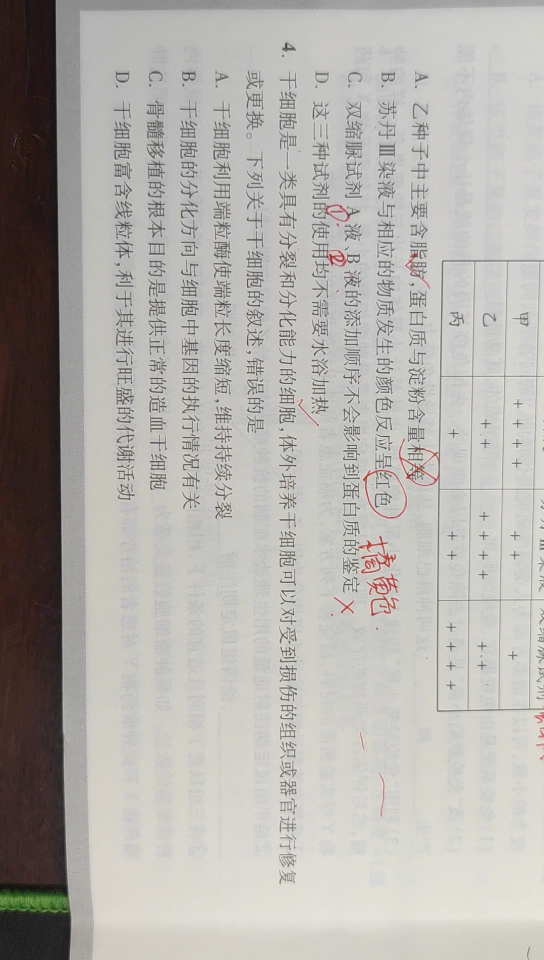 苏丹Ⅲ染液 双缩脲试剂
甲 ++++ ++ +
乙 ++ ++++ ++
丙 + ++ ++++
A. 乙种子中主要含脂肪,蛋白质与淀粉含量相等
B. 苏丹Ⅲ染液与相应的物质发生的颜色反应呈红色 橘黄色.
C. 双缩脲试剂 A 液、B 液的添加顺序不会影响到蛋白质的鉴定 ×
① ②
D. 这三种试剂的使用均不需要水浴加热
4. 干细胞是一类具有分裂和分化能力的细胞,体外培养干细胞可以对受到损伤的组织或器官进行修复
或更换。下列关于干细胞的叙述,错误的是
A. 干细胞利用端粒酶使端粒长度缩短,维持持续分裂
B. 干细胞的分化方向与细胞中基因的执行情况有关
C. 骨髓移植的根本目的是提供正常的造血干细胞
D. 干细胞富含线粒体,利于其进行旺盛的代谢活动